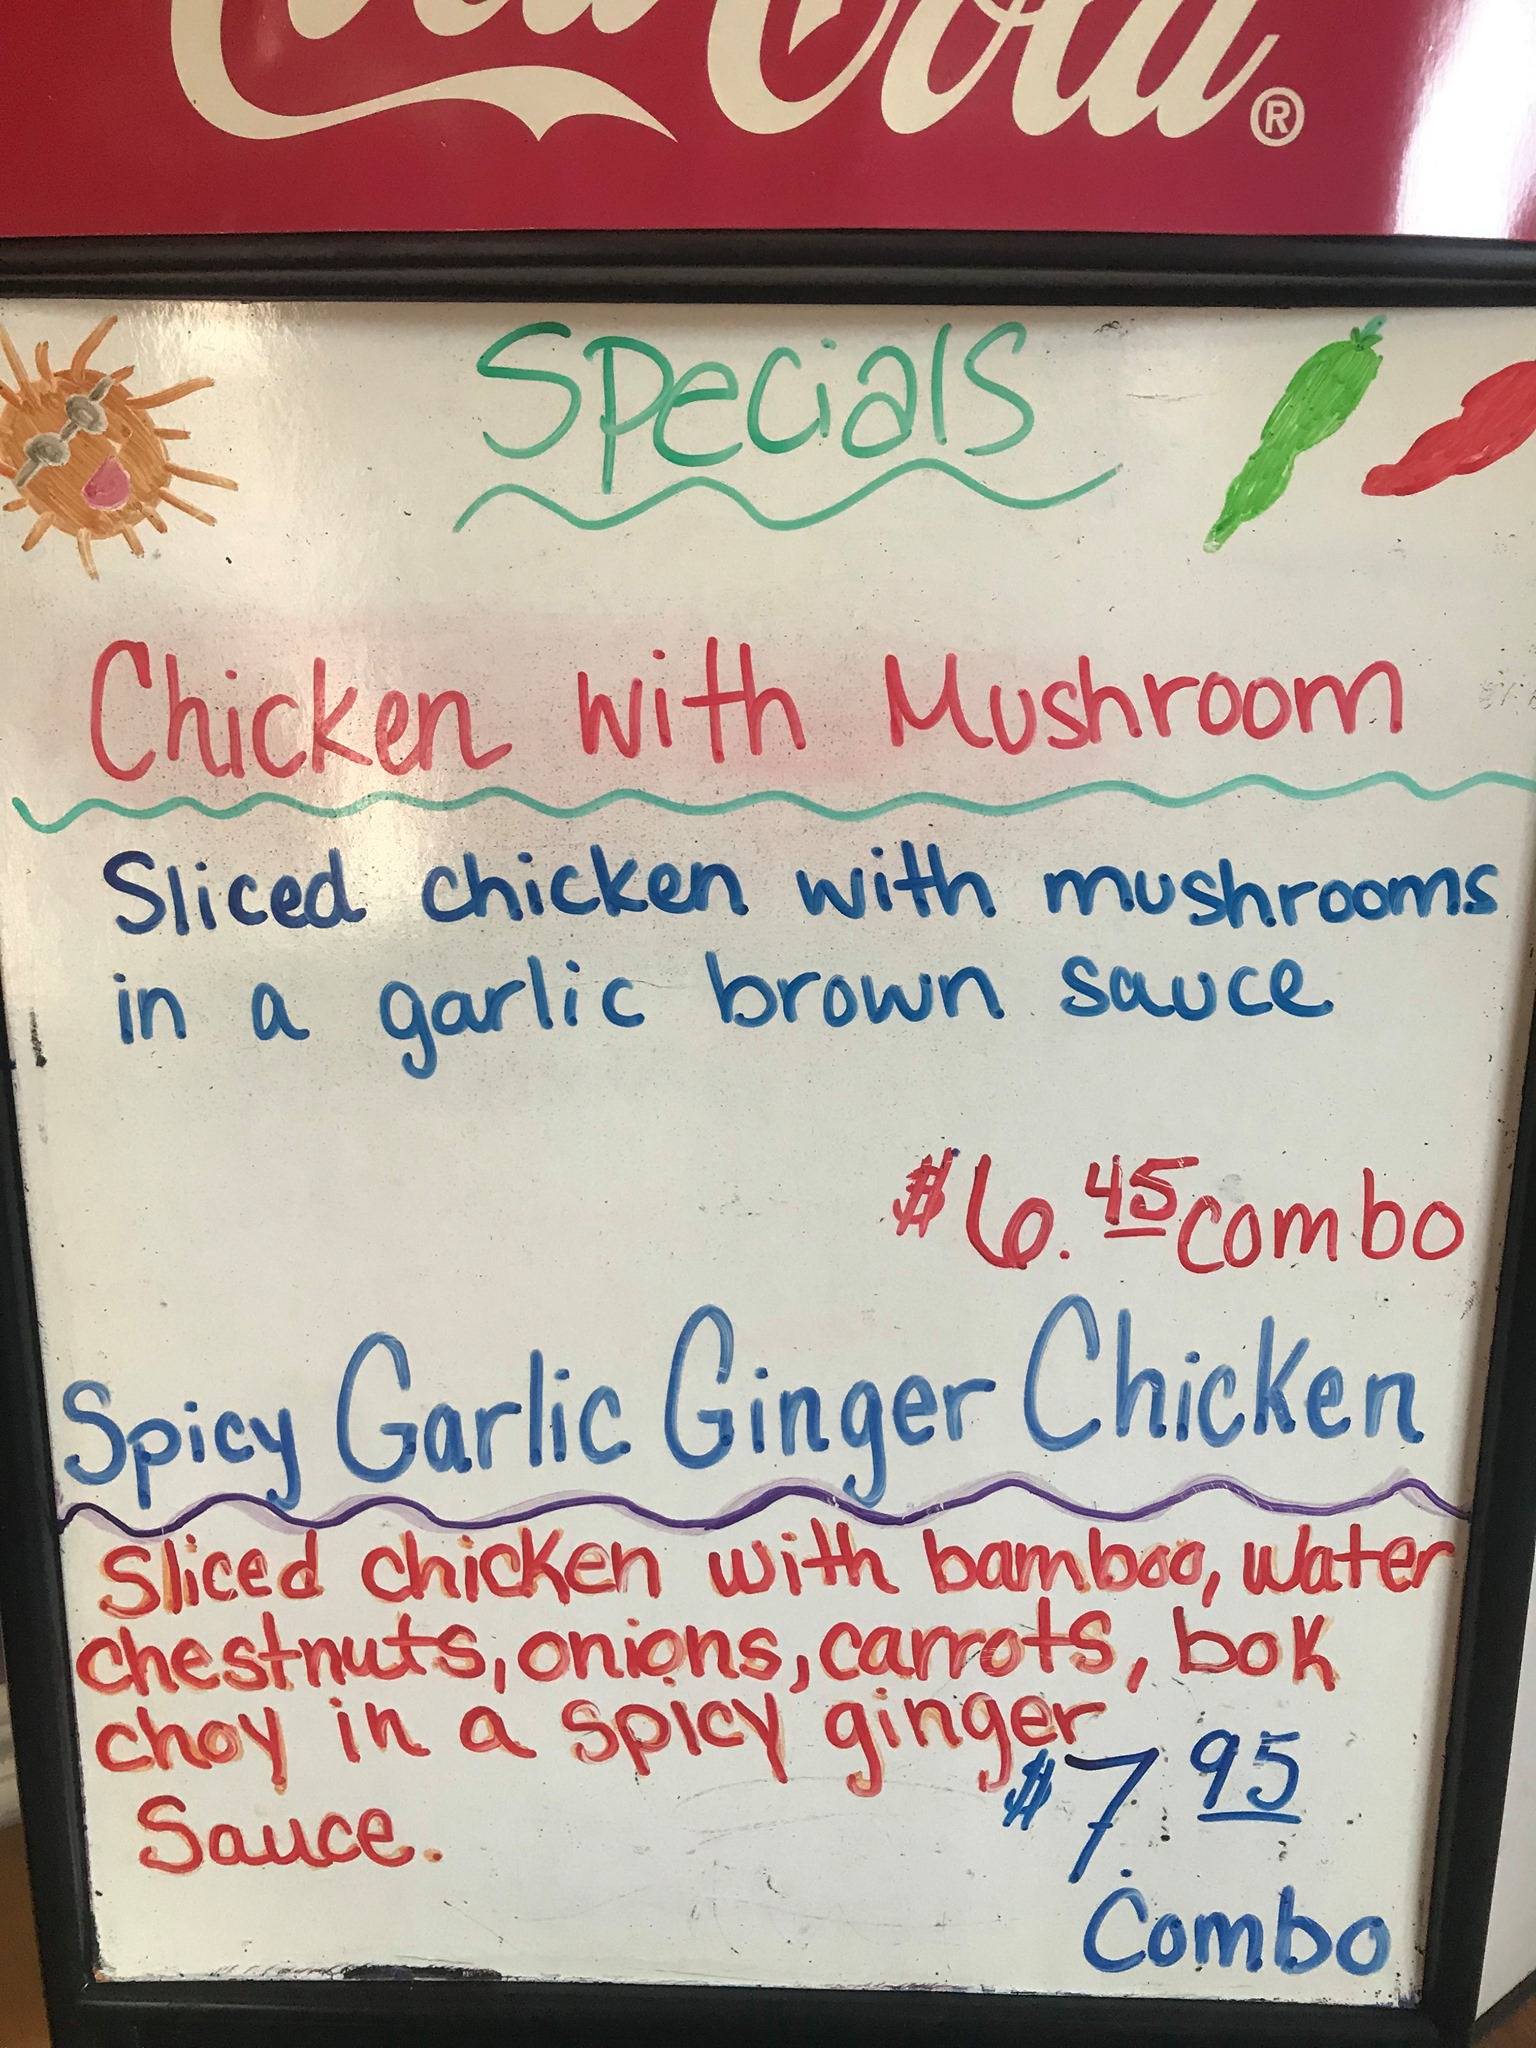 Coca-Cola®
Specials
Chicken with Mushroom
Sliced chicken with mushrooms
in a garlic brown sauce
$6.45 combo
Spicy Garlic Ginger Chicken
Sliced chicken with bamboo, water
chestnuts, onions, carrots, bok
choy in a spicy ginger
Sauce.
$7.95
Combo